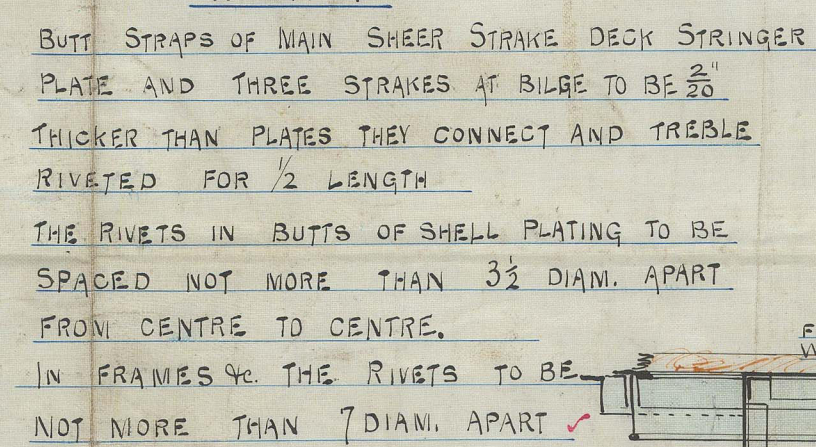 BUTT STRAPS OF MAIN SHEER STRAKE DECK STRINGER
PLATE AND THREE STRAKES AT BILGE TO BE 2/20"
THICKER THAN PLATES THEY CONNECT AND TREBLE
RIVETED FOR 1/2 LENGTH
THE RIVETS IN BUTTS OF SHELL PLATING TO BE
SPACED NOT MORE THAN 3 1/2 DIAM. APART
FROM CENTRE TO CENTRE.
IN FRAMES &c. THE RIVETS TO BE
NOT MORE THAN 7 DIAM. APART